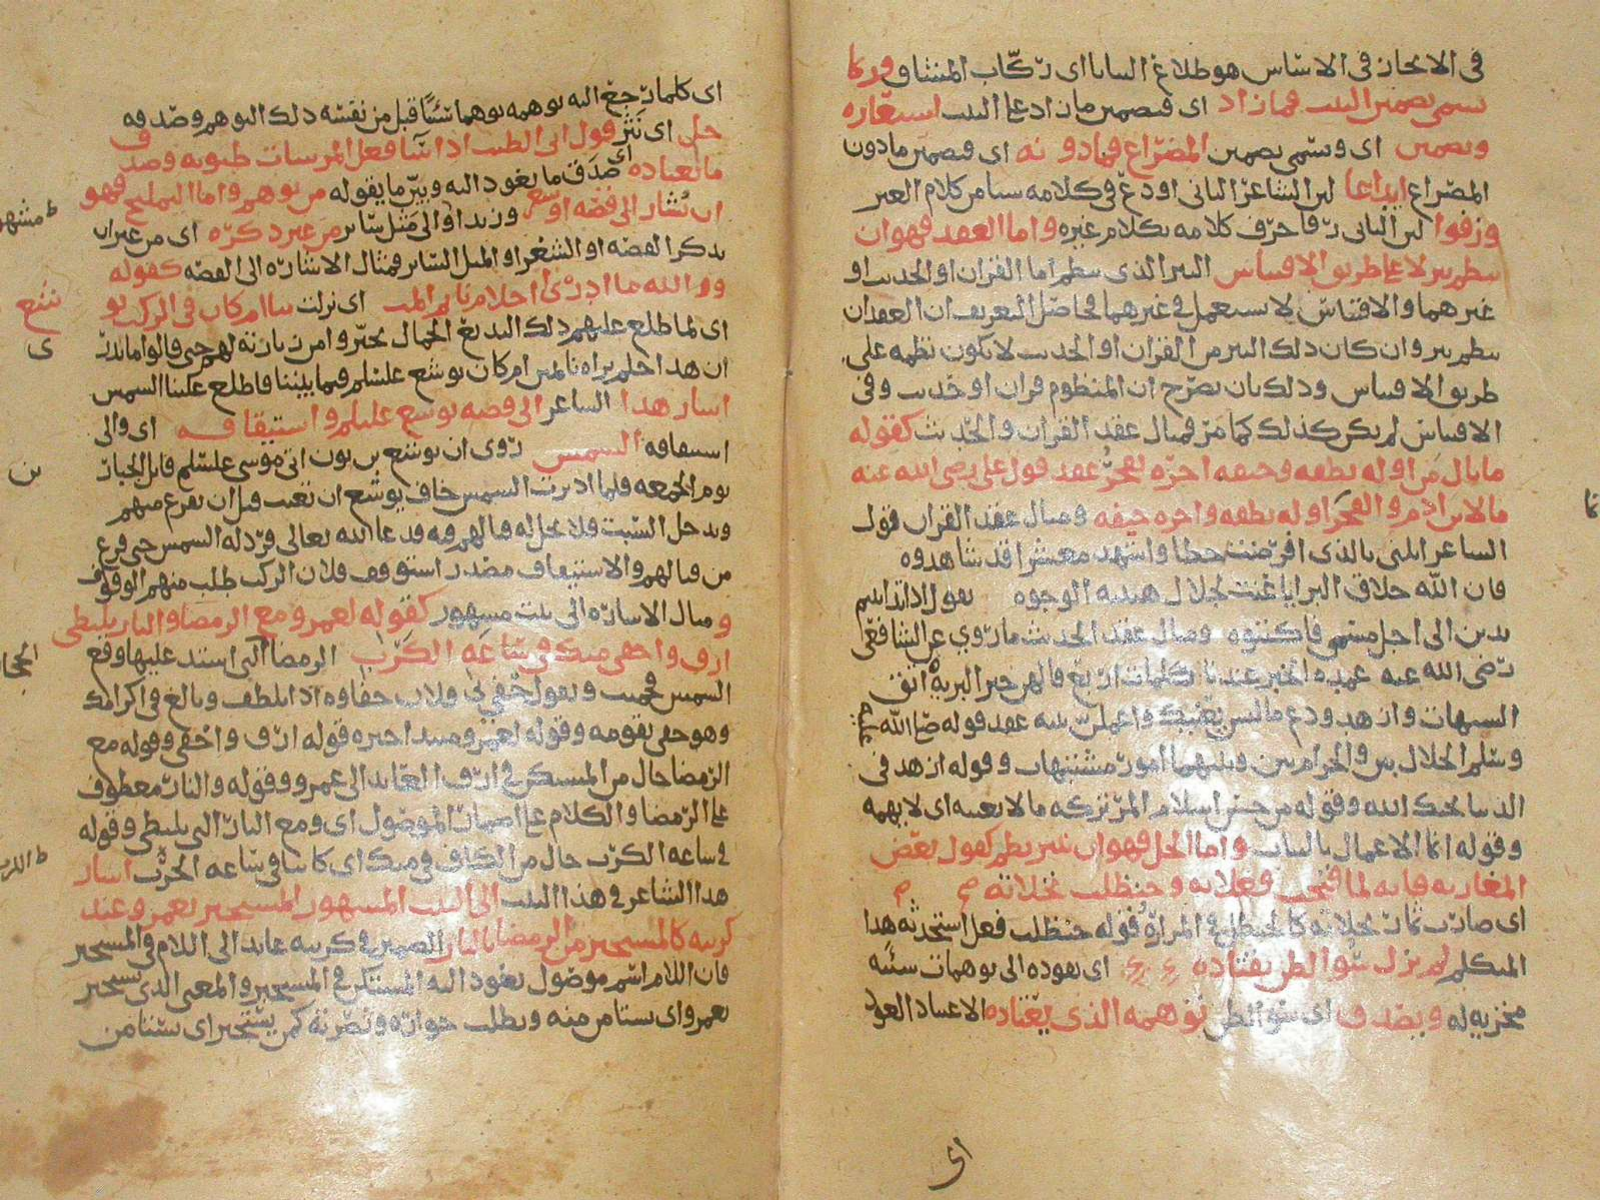 في الايجاز في الاساس هو طلاع الثنايا اي ركاب المشاق وربما
سمى تضمين البيت فما زاد اي تضمين ما زاد على البيت استعارة
وتضمين اي ويسمى تضمين المصراع فما دونه اي تضمين ما دون
المصراع ايداعا لان الشاعر الثاني اودع في كلامه شيئا من كلام الغير
ورفوا لان الثاني رفا خرق كلامه بكلام غيره واما العقد فهو ان
ينظم نثر لا على طريق الاقتباس النثر الذي ينظم اما القران او الحديث او
غيرهما والاقتباس لا يستعمل في غيرهما فحاصل التعريف ان العقد ان
ينظم نثر وان كان ذلك النثر من القران او الحديث لا يكون نظمه على
طريق الاقتباس وذلك بان يصرح ان المنظوم قران او حديث وفي
الاقتباس لم يكن كذلك كما مر فمثال عقد القران والحديث كقوله
ما بال من اوله نطفه وجيفه اخره يفخر عقد قول علي رضى الله عنه
ما لابن ادم والفخر اوله نطفه واخره جيفه ومثال عقد القران قول
الشاعر انلني بالذي اقرضت حظا واشهد معشرا قد شاهدوه
فان الله خلاق البرايا عنت لجلال هيبته الوجوه يقول اذا تداينتم
بدين الى اجل مسمى فاكتبوه ومثال عقد الحديث ما روي عن الشافعي
رضى الله عنه عمدة الخير عندنا كلمات اربع قالهن خير البرية اتق
الشبهات وازهد ودع ما ليس يعنيك واعملن بنيه عقد قوله صلى الله عليه
وسلم الحلال بين والحرام بين وبينهما امور مشتبهات وقوله ازهد في
الدنيا يحبك الله وقوله من حسن اسلام المرء تركه ما لا يعنيه اي لا يهمه
وقوله انما الاعمال بالنيات واما الحل فهو ان ينثر نظم كقول بعض
المغاربه فانه لما قبحت فعلاته وحنظلت نخلاته
اي صارت ثمار نخلاته كالحنظل في المرارة قوله حنظلت فعل استحدثه هذا
المتكلم لم يزل سوء الظن يقتاده اي يقوده الى توهمات سيئه
مخزيه له ويصدق اي سوء الظن توهمه الذي يعتاده الاعتياد العود
اي
اي كلما رجع اليه توهمه توهما شيئا قبل من نفسه ذلك التوهم وصدقه
حل اي نثر قول ابي الطيب اذا ساء فعل المرء ساءت ظنونه وصدق
ما يعتاده اي صدق ما يعود اليه وبين ما يقوله من توهم واما التلميح فهو
ان يشار الى قصه او شعر وزيد او الى مثل سائر من غير ذكره اي من غير ان
يذكر القصه او الشعر او المثل السائر فمثال الاشاره الى القصه كقوله
فوالله ما ادري احلام نائم المت اي نزلت بنا ام كان في الركب يو
شع
اي لما طلع عليهم ذلك البديع الجمال تحير وامن بازته لهم حتى قالوا ما ندري
ان هذا حلم يراه نائم ام كان يوشع عليسلم فيما بيننا فاطلع علينا الشمس
اشار هذا الشاعر الى قصه يوشع عليلم واستيقافه اي والى
استيقافه الشمس روى ان يوشع بن نون اتى موسى عليسلم قاتل الجبارين
يوم الجمعه فلما ادبرت الشمس خاف يوشع ان تغيب قبل ان يفرغ منهم
ويدخل السبت فلا يحل له قتالهم فيه فدعا الله تعالى فرد له الشمس حتى فرغ
من قتالهم والاستيقاف مصدر استوقف فلان الركب طلب منهم الوقوف
ومثال الاشاره الى بيت مشهور كقوله لعمرو مع الرمضا والنار تلتظي
ارق واحفى منك في ساعه الكرب الرمضا التي اشتد عليها وقع
الشمس فحميت ويقول حفي بي فلان حفاوه اذا تلطف وبالغ في اكرامك
وهو حفي بقومه وقوله لعمرو مبتدا خبره قوله ارق واحفى وقوله مع
الرمضا حال من المستكن في ارق العايد الى عمرو وقوله والنار معطوف
على الرمضا والكلام على اضمار الموصول اي ومع النار التي تلتظي وقوله
في ساعه الكرب حال من الكاف في منك اي كاينا في ساعه الحرب اشار
هذا الشاعر في هذا البيت الى البيت المشهور المستجير بعمرو عند
كربته كالمستجير من الرمضا بالنار الضمير في كربته عايد الى اللام في المستجير
فان اللام اسم موصول يعود اليه المستكن في المستجير والمعنى الذي يستجير
بعمرو اي يستامن منه ويطلب جواره ونصرته كمن يستجير اي يستامن